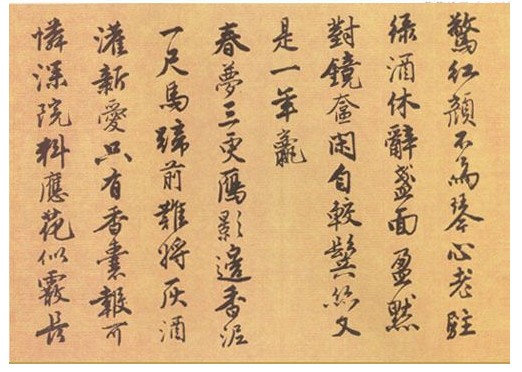 驚紅顏不為琴心老駐
綠酒休辭盞面盈黙
對鏡奩閑自較鬢絲又
是一年贏
春夢三更鴈影邊香泥
一尺馬蹄前難將灰酒
灌新愛只有香囊報可
憐深院料應花似霰長